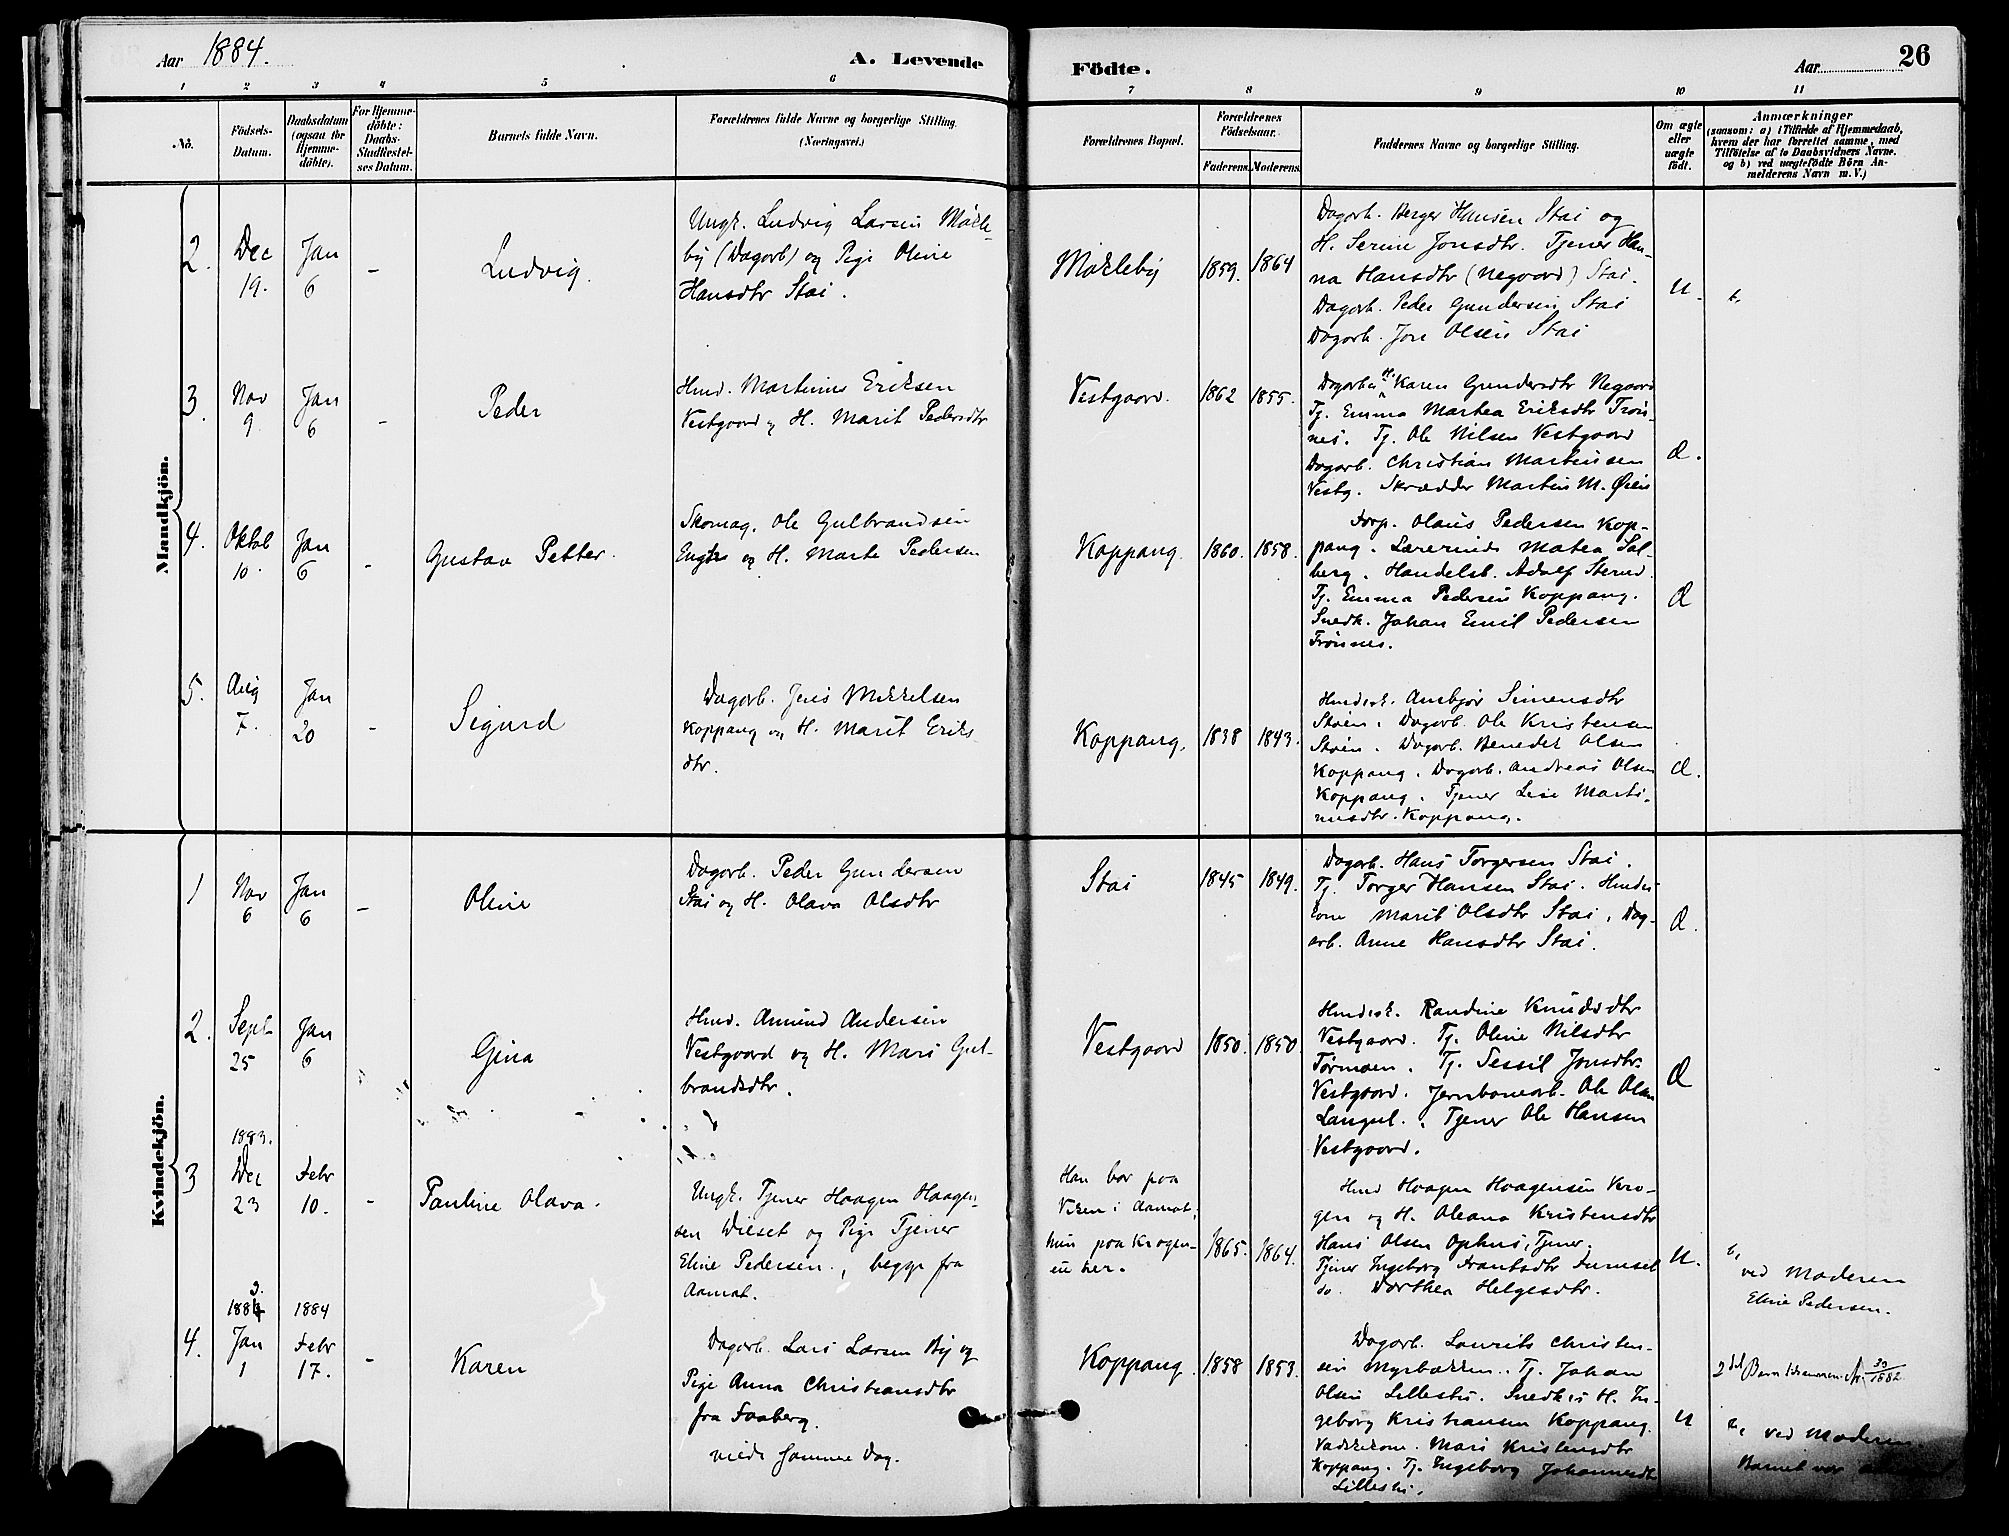 Aar 1884.
A. Levende
Födte.
Aar
26
1 2 3 4 5 6 7 8 9 10 11
No.
Födsels-
Datum.
Daabsdatum
(ogsaa for
Hjemme-
döbte).
For Hjemme-
döbte:
Daabs-
Stadfæstel-
ses Datum.
Barnets fulde Navn.
Forældrenes fulde Navne og borgerlige Stilling.
(Næringsvei.)
Forældrenes Bopæl.
Forældrenes
Födselsaar.
Faderens. Moderens.
Faddernes Navne og borgerlige Stilling.
Om ægte
eller
uægte
födt.
Anmærkninger
(saasom: a) i Tilfælde af Hjemmedaab,
hvem der har forrettet samme, med
Tilföielse af to Daabsvidners Navne.
og b) ved uægtefödte Börn An-
melderens Navn m.V.)
Mandkjön.
2.
Dec
19.
Jan
6
-
Ludvig.
Ungk. Ludvig Larsen Mokle-
by (Dagarb) og Pige Oline
Hansdtr Stai.
Mokleby
1859. 1864
Dagarb. Berger Hansen Stai og
H. Serine Jonsdtr. Tjener Han-
na Hansdtr (Negaard) Stai.
Dagarb. Peder Gundersen Stai
Dagarb. Jon Olsen Stai
u.
b,
3.
Nov
9
Jan
6
-
Peder
Hmd. Martinus Eriksen
Vestgaard og H. Marit Pedersdtr
Vestgaard.
1862 1855.
Dagarbei H. Karen Gundersdtr Negaard
Tj. Emma Martea Eriksdtr Trøn-
nes. Tj. Ole Nilsen Vestgaard
Dagarb. Christian Martinsen
Vestg. Skrædder Martin M. Øien
Æ.
4.
Oktob
10.
Jan
6
-
Gustav Petter.
Skomag. Ole Gulbrandsen
Enget og H. Marte Pedersen
Koppang.
1860. 1858.
Forp. Olaus Pedersen Kop-
pang. Lærerinde Matea Sol-
berg. Handelsb. Adolf Sterud.
Tj. Emma Pedersen Koppang.
Snedk. Johan Emil Pedersen
Trønnes.
Æ
5.
Aug
7.
Jan
20
-
Sigurd
Dagarb. Jens Mikkelsen
Koppang og H. Marit Eriks-
dtr.
Koppang.
1838 1843.
Hmdsk. Ansbjør Simensdtr
Støen. Dagarb. Ole Kristensen
Støen. Dagarb. Benedik Olsen
Koppang. Dagarb. Andreas Olsen
Koppang. Tjener Lise Marti-
nusdtr. Koppang.
Æ.
Kvindekjön.
1
Nov
6
Jan
6
-
Oline
Dagarb. Peder Gundersen
Stai og H. Olava Olsdtr
Stai
1845 1849.
Dagarb. Hans Torgersen Stai.
Tj. Torger Hansen Stai. Hmds-
kone Marit Olsdtr Stai, Dag-
arb. Anne Hansdtr Stai.
Æ.
2.
Sept
25
Jan
6
Gina
Hmd. Amund Andersen
Vestgaard og H. Mari Gul-
brandsdtr.
Vestgaard
1850. 1850.
Hmdsk. Randine Knudsdtr
Vestgaard. Tj. Oline Nilsdtr
Tørmoen. Tj. Sessil Jonsdtr.
Vestgaard. Jernbanearb. Ole Olsen
Tjener Ole Hansen
Vestgaard.
Æ
3
1883.
Dec
23
Febr
10.
-
Pauline Olava.
Ungk. Tjener Haagen Haagen-
sen Wilset og Pige Tjener
Eline Pedersen, begge fra
Aamot.
Han bor paa
i Aamot,
hun paa Krogen-
en her.
1865. 1864.
Hmd Haagen Haagensen Kro-
gen og H. Oleana Kristensdtr
Hans Olsen Ophus, Tjener.
Tjener Ingeborg Frantsdtr Furuset
do. Dorthea Helgesdtr.
u.
b,
ved Moderen
Eline Pedersen.
4.
1883
Jan
1
1884
Febr
17.
-
Karen
Dagarb. Lars Larsen By og
Pige Anna Christiansdtr
fra Faaberg.
viede samme Dag.
Koppang.
1858 1853.
Dagarb. Laurits Christen-
sen Myrbakken. Tj. Johan
Olsen Lillestu. Snedkers H. In-
geborg Kristiansen Koppang.
Vaskekone. Mari Kristensdtr
Koppang. Tj. Ingeborg Johannesdtr
Lillestu.
u
2det Barn 39/1882
b, ved Moderen
Barnet var